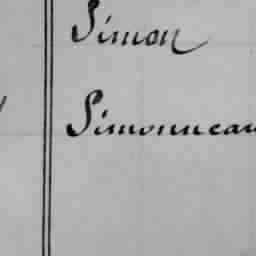 Simon
Simonneau